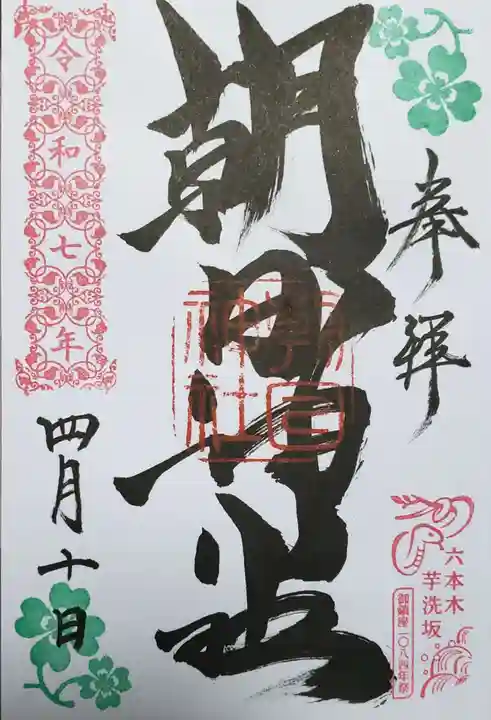 奉拝
六本木
芋洗坂
御鎮座一〇八四年祭
朝日神社
朝日
神社
令和七年
四月十日